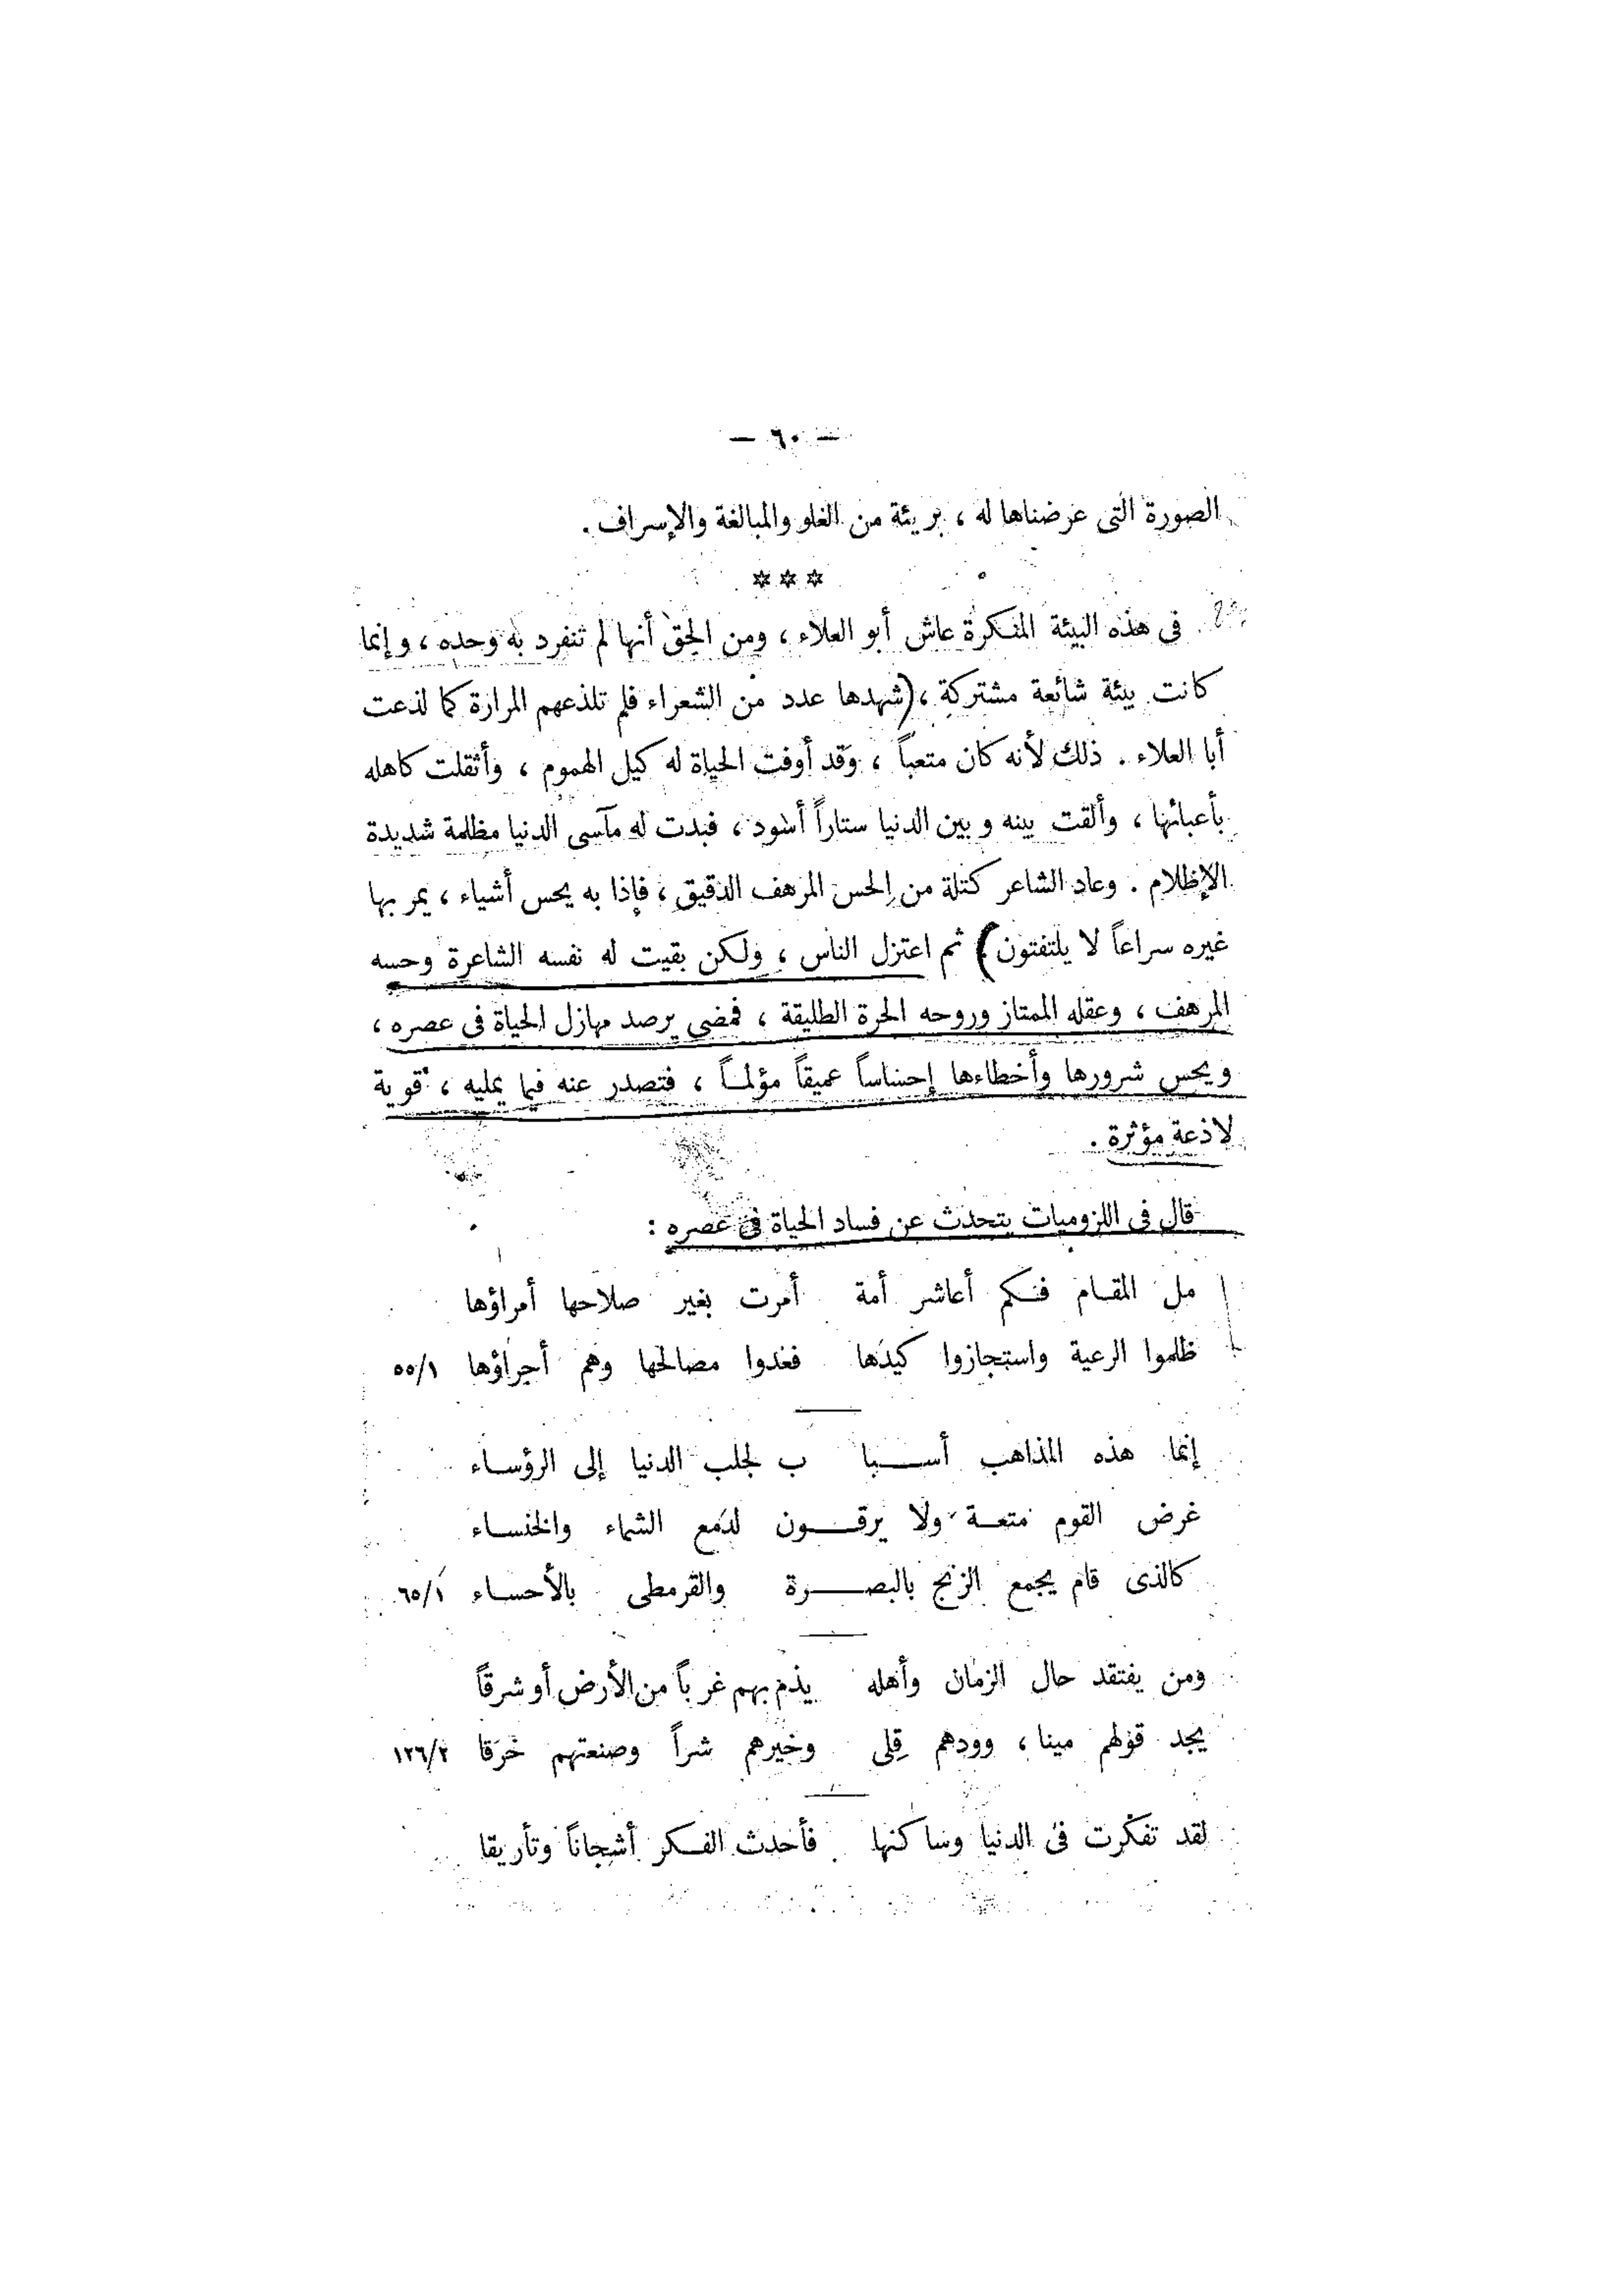 — ٦٠ —
الصورة التى عرضناها له ، بريئة من الغلو والمبالغة والإسراف .
* * *
فى هذه البيئة المنكرة عاش أبو العلاء ، ومن الحق أنها لم تنفرد به وحده ، وإنما
كانت بيئة شائعة مشتركة ، (شهدها عدد من الشعراء فلم تلذعهم المرارة كما لذعت
أبا العلاء . ذلك لأنه كان متعباً ، وقد أوفت الحياة له كيل الهموم ، وأثقلت كاهله
بأعبائها ، وألقت بينه وبين الدنيا ستاراً أسود ، فبدت له مآسى الدنيا مظلمة شديدة
الإظلام . وعاد الشاعر كتلة من الحس المرهف الدقيق ، فإذا به يحس أشياء ، يمر بها
غيره سراعاً لا يلتفتون) ثم اعتزل الناس ، ولكن بقيت له نفسه الشاعرة وحسه
المرهف ، وعقله الممتاز وروحه الحرة الطليقة ، فمضى يرصد مهازل الحياة فى عصره ،
ويحس شرورها وأخطاءها إحساساً عميقاً مؤلماً ، فتصدر عنه فيما يمليه ، قوية
لاذعة مؤثرة .
قال فى اللزوميات يتحدث عن فساد الحياة فى عصره :
مل المقام فكم أعاشر أمة أمرت بغير صلاحها أمراؤها
ظلموا الرعية واستجازوا كيدها فغدوا مصالحها وهم أجراؤها ٥٥/١
إنما هذه المذاهب أسبا ب لجلب الدنيا إلى الرؤساء
غرض القوم متعة ولا يرقون لدمع الشماء والخنساء
كالذى قام يجمع الزنج بالبصرة والقرمطى بالأحساء ٦٥/١
ومن يفتقد حال الزمان وأهله يذم بهم غرباً من الأرض أو شرقاً
يجد قولهم مينا ، وودهم قِلى وخيرهم شراً وصنعتهم خَرَقا ١٢٦/٢
لقد تفكرت فى الدنيا وساكنها فأحدث الفكر أشجاناً وتأريقا